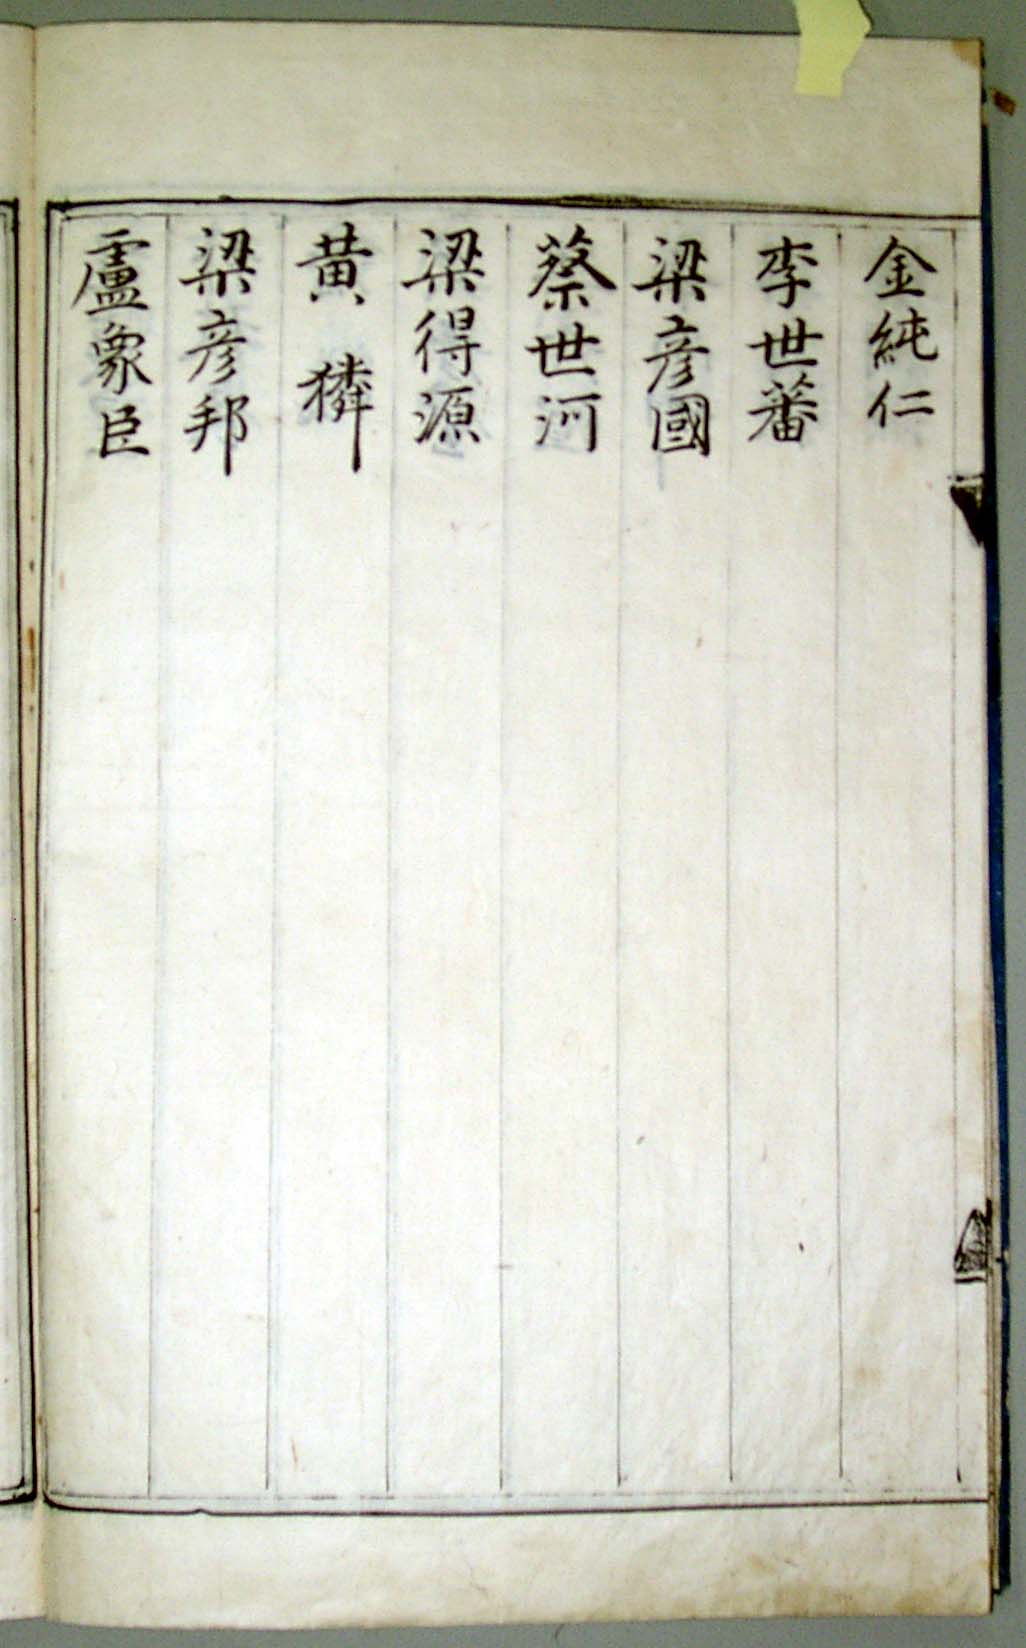 金純仁
李世蕃
梁彦國
蔡世河
梁得源
黄獜
梁彦邦
盧象臣